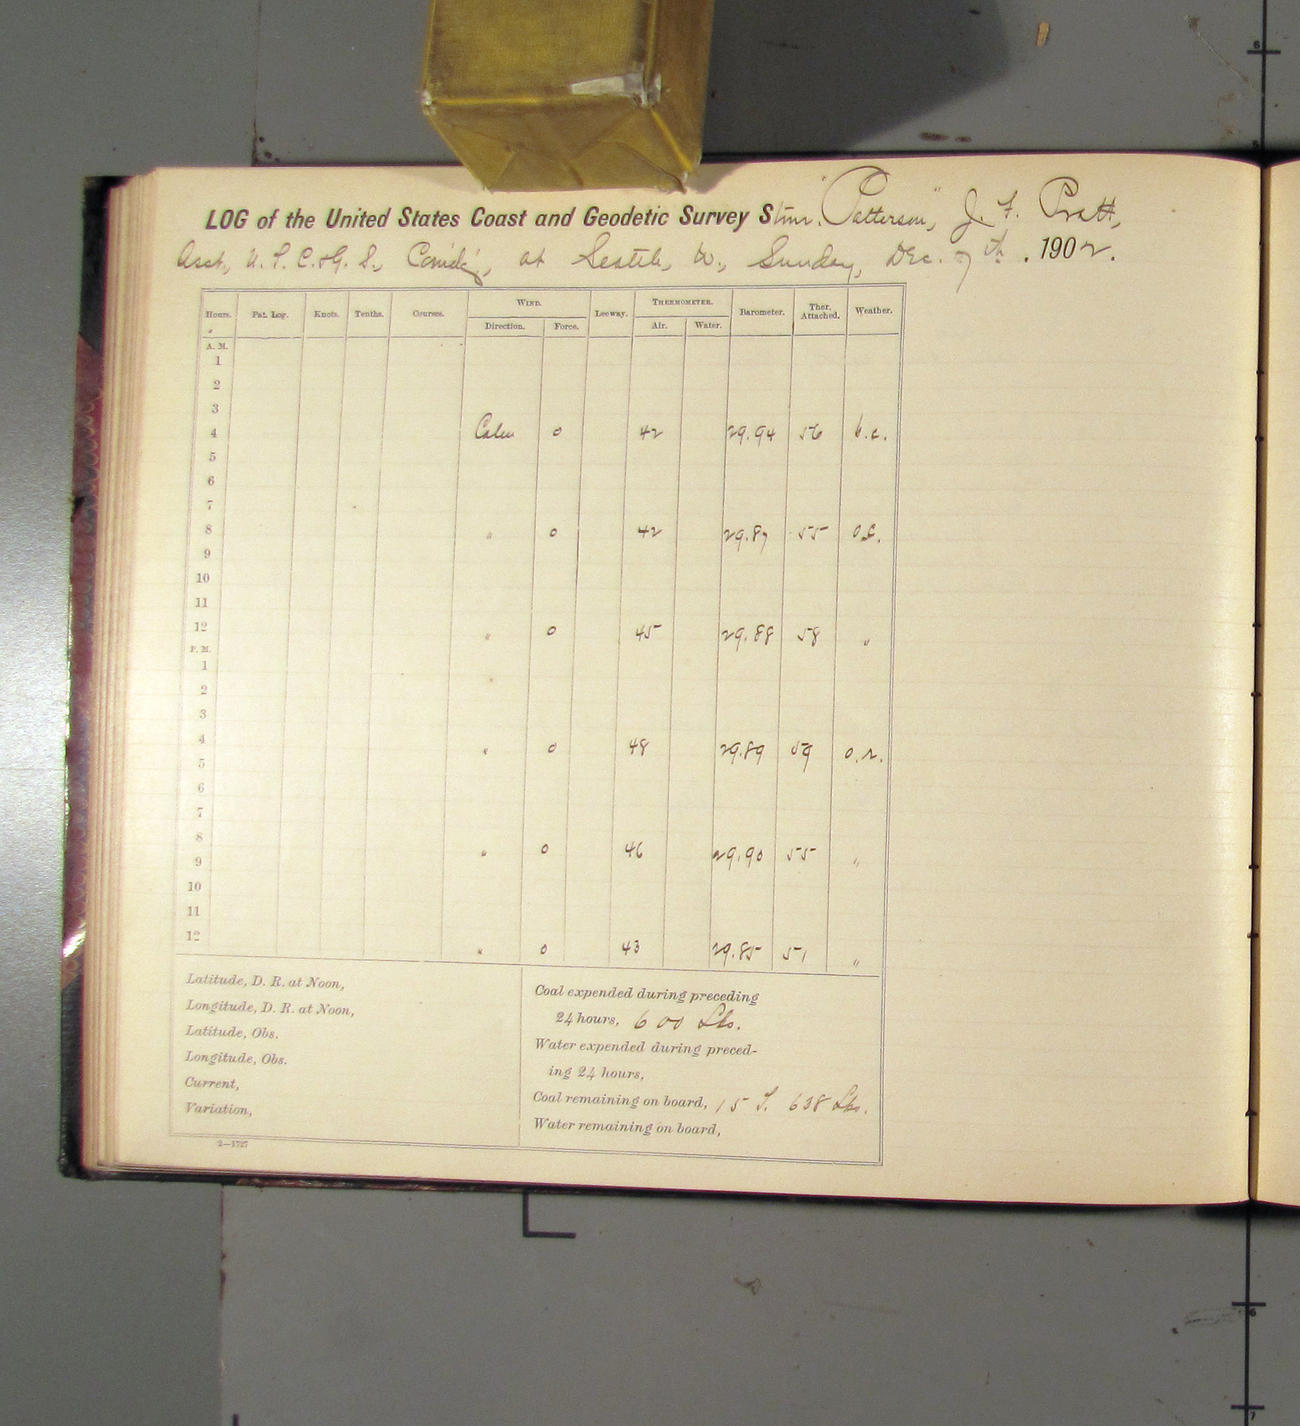 LOG of the United States Coast and Geodetic Survey Stmr. "Patterson", J. F. Pratt,
Asst, U. S. C. & G. S., Comd'g, at Seattle, W., Sunday, Dec. 7th, 1902.
Hours. Pat. Log. Knots. Tenths. Courses. WIND. Leeway. THERMOMETER. Barometer. Ther. Attached. Weather.
Direction. Force. Air. Water.
A. M.
1
2
3
4 Calm 0 42 29.94 56 b.c.
5
6
7
8 " 0 42 29.87 55 o.c.
9
10
11
12 " 0 45 29.88 58 "
P. M.
1
2
3
4 " 0 48 29.89 59 o.r.
5
6
7
8 " 0 46 29.90 55 "
9
10
11
12 " 0 43 29.85 51 "
Latitude, D. R. at Noon,
Longitude, D. R. at Noon,
Latitude, Obs.
Longitude, Obs.
Current,
Variation,
Coal expended during preceding
24 hours, 600 Lbs.
Water expended during preced-
ing 24 hours,
Coal remaining on board, 15 T. 638 Lbs.
Water remaining on board,
2—1727
6
5
6
7